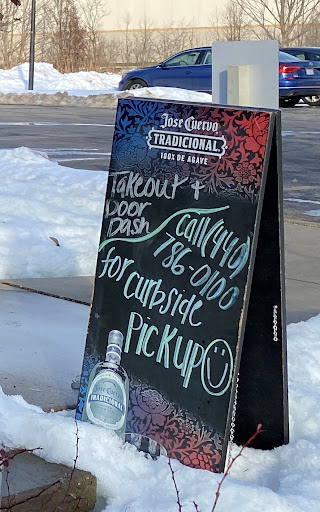 Jose Cuervo
TRADICIONAL.
100% DE AGAVE
Takeout +
Door
Dash
call (440)
786-0100
for curbside
Pickup
Jose Cuervo
TRADICIONAL